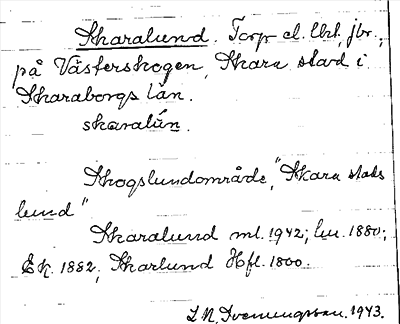 Skaralund. Torp el. lht. jbr.,
på Västerskogen, Skara stad i
Skaraborgs län.
skaralún.
Skogslundområde, "Skara stads
lund"
Skaralund ml. 1942; 1880;
Ek. 1882; Skarlund Hfl. 1800.
1943.